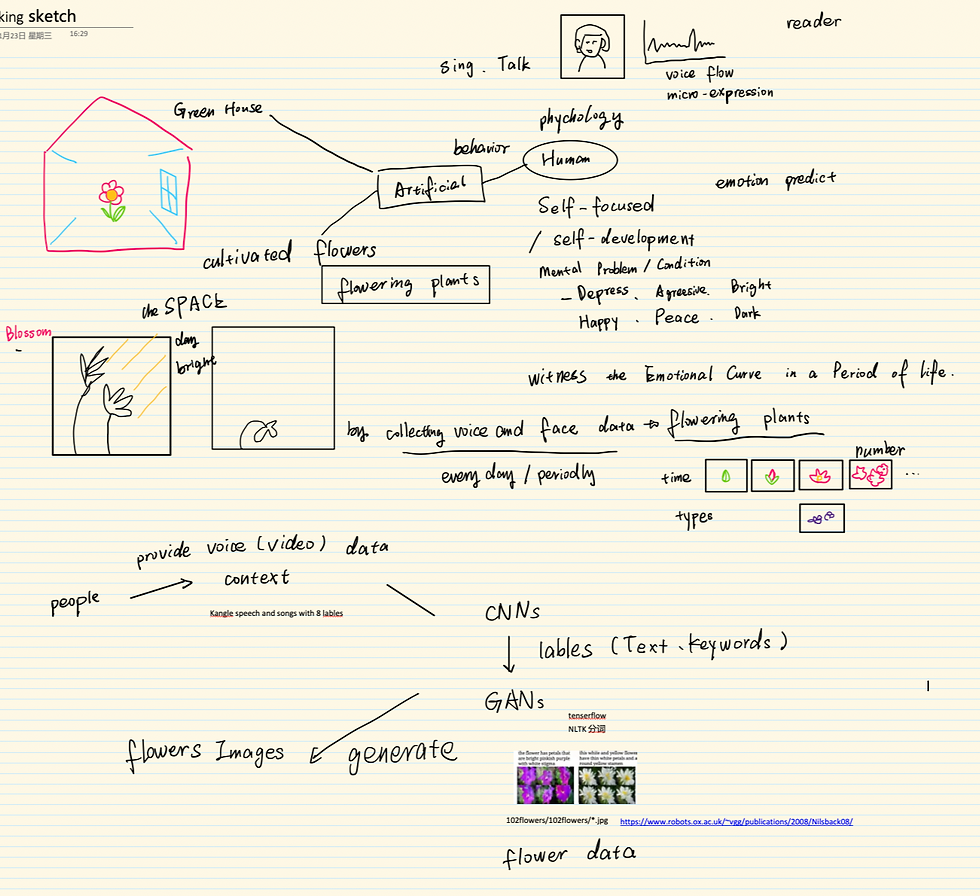 king sketch
1月23日 星期三 16:29
reader
sing . Talk
voice flow
micro-expression
Green House
phychology
behavior
Human
Artificial
emotion predict
Self-focused
/ self-development
Mental Problem / Condition
- Depress. Agressive. Bright
Happy . Peace . Dark
cultivated flowers
flowering plants
the SPACE
Blossom
day
bright
witness the Emotional Curve in a Period of life.
by collecting voice and face data → flowering plants
every day / periodly
number
time
...
types
provide voice (video) data
context
people
Kangle speech and songs with 8 lables
CNNs
lables (Text、keywords)
GANs
tenserflow
NLTK 分词
flowers Images
generate
the flower has petals that
are bright pinkish purple
with white stigma
this white and yellow flower
have thin white petals and a
round yellow stamen
102flowers/102flowers/*.jpg
https://www.robots.ox.ac.uk/~vgg/publications/2008/Nilsback08/
flower data